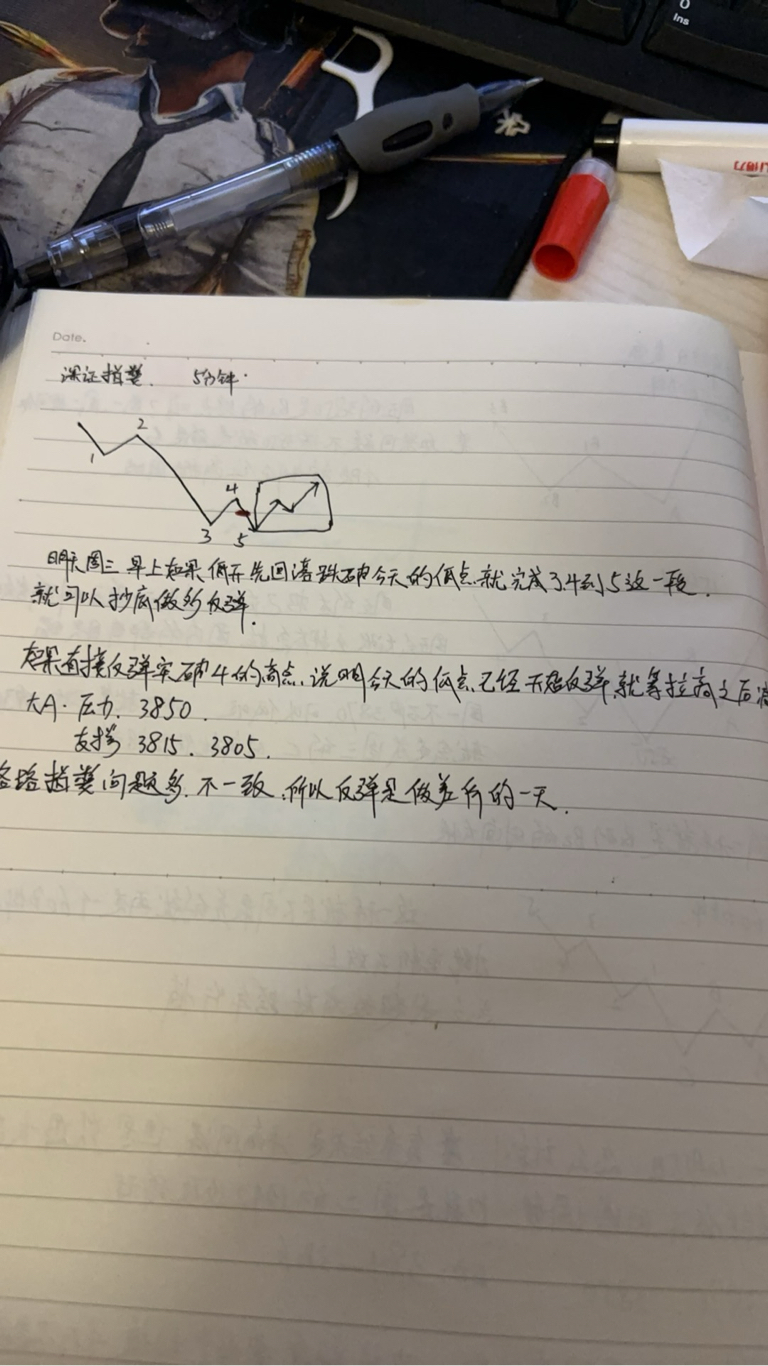 Ins
得力
Date.
深证指数. 5分钟.
1 2 3 4 5
明天周三早上如果低开先回落跌破今天的低点.就完成了4到5这一段.
就可以抄底做多反弹.
如果直接反弹突破4的高点.说明今天的低点已经开始反弹.就等拉高之后
大A.压力.3850.
支撑 3815.3805.
各路指数问题多.不一致.所以反弹是做差价的一天.